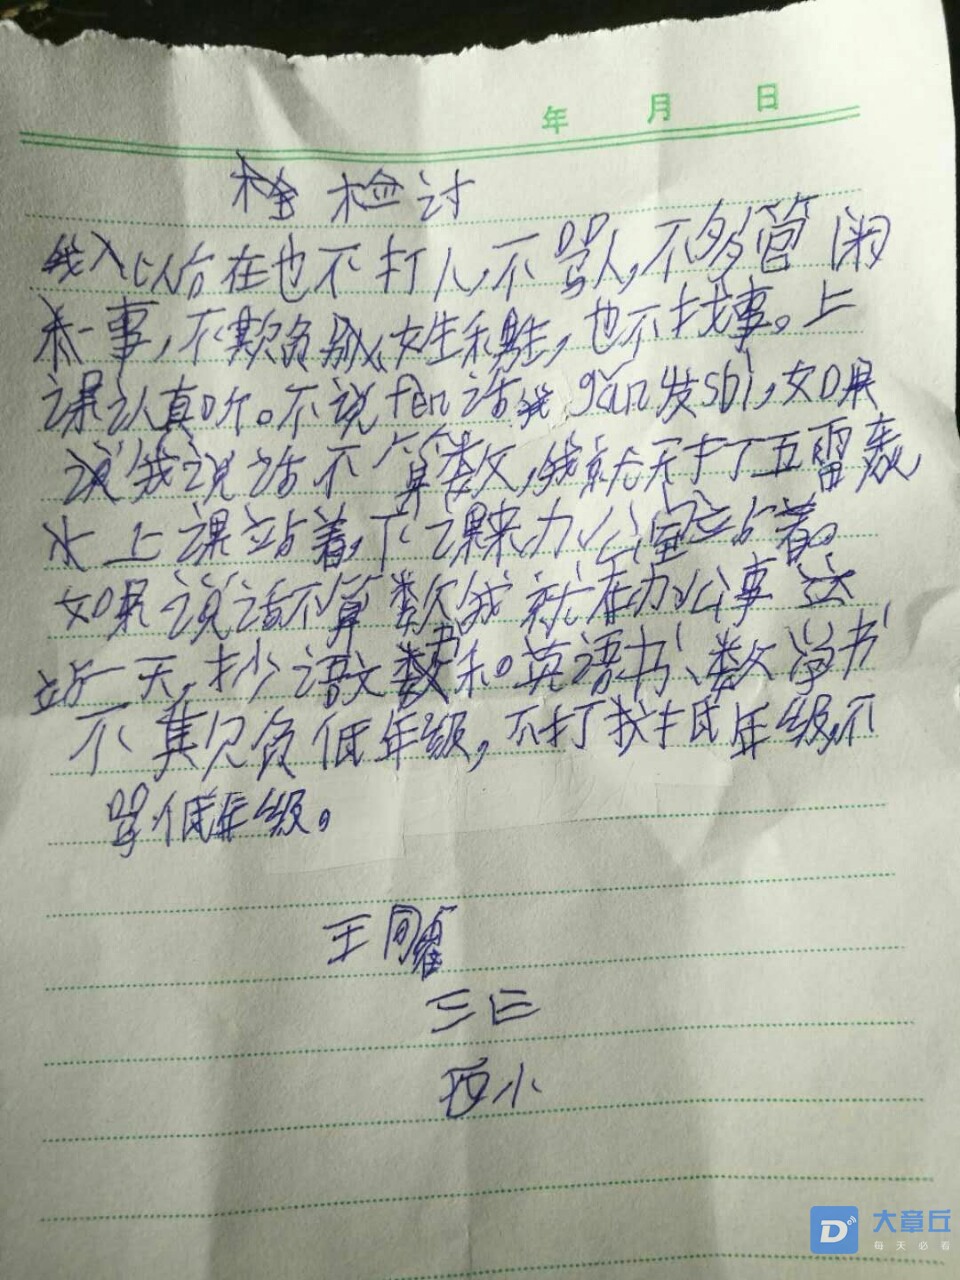 年 月 日
检讨
我从以后在也不打人,不骂人,不多管闲
事,不欺负别人女生和男生,也不找事。上
课认真听。不说fen话我gǎn发shi,如果
说我说话不算数,我就天打五雷轰
上课站着,下课来办公室站着。
如果说话不算数我就在办公事这
站一天,抄语文书和英语书、数学书
不欺负低年级,不打找低年级,不
骂低年级。
王同
三三
小
大章丘
每天必看